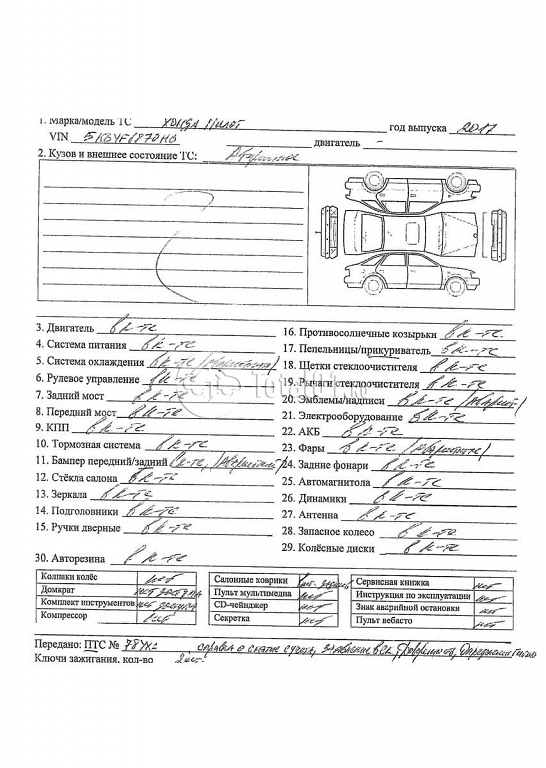 1. Марка/модель ТС Хонда Пилот год выпуска 2017
VIN двигатель -
2. Кузов и внешнее состояние ТС: Аварийное
3. Двигатель в к-те
4. Система питания в к-те
5. Система охлаждения в к-те /аварийная/
6. Рулевое управление в к-те
7. Задний мост в к-те
8. Передний мост в к-те
9. КПП в к-те
10. Тормозная система в к-те
11. Бампер передний/задний в к-те,
12. Стёкла салона в к-те
13. Зеркала в к-те
14. Подголовники в к-те
15. Ручки дверные в к-те
16. Противосолнечные козырьки в к-те.
17. Пепельницы/прикуриватель в к-те
18. Щетки стеклоочистителя в к-те
19. Рычаги стеклоочистителя в к-те
20. Эмблемы/надписи в к-те
21. Электрооборудование в к-те
22. АКБ в к-те
23. Фары в к-те
24. Задние фонари в к-те
25. Автомагнитола в к-те
26. Динамики в к-те
27. Антенна в к-те
28. Запасное колесо в к-те
29. Колёсные диски в к-те
30. Авторезина в к-те
Колпаки колёс нет
Домкрат нет
Комплект инструментов нет
Компрессор нет
Салонные коврики
Пульт мультимедиа нет
CD-чейнджер нет
Секретка нет
Сервисная книжка нет
Инструкция по эксплуатации нет
Знак аварийной остановки нет
Пульт вебасто нет
Передано: ПТС № 78УХ справка о снятии с учета,
Ключи зажигания, кол-во 2 шт.